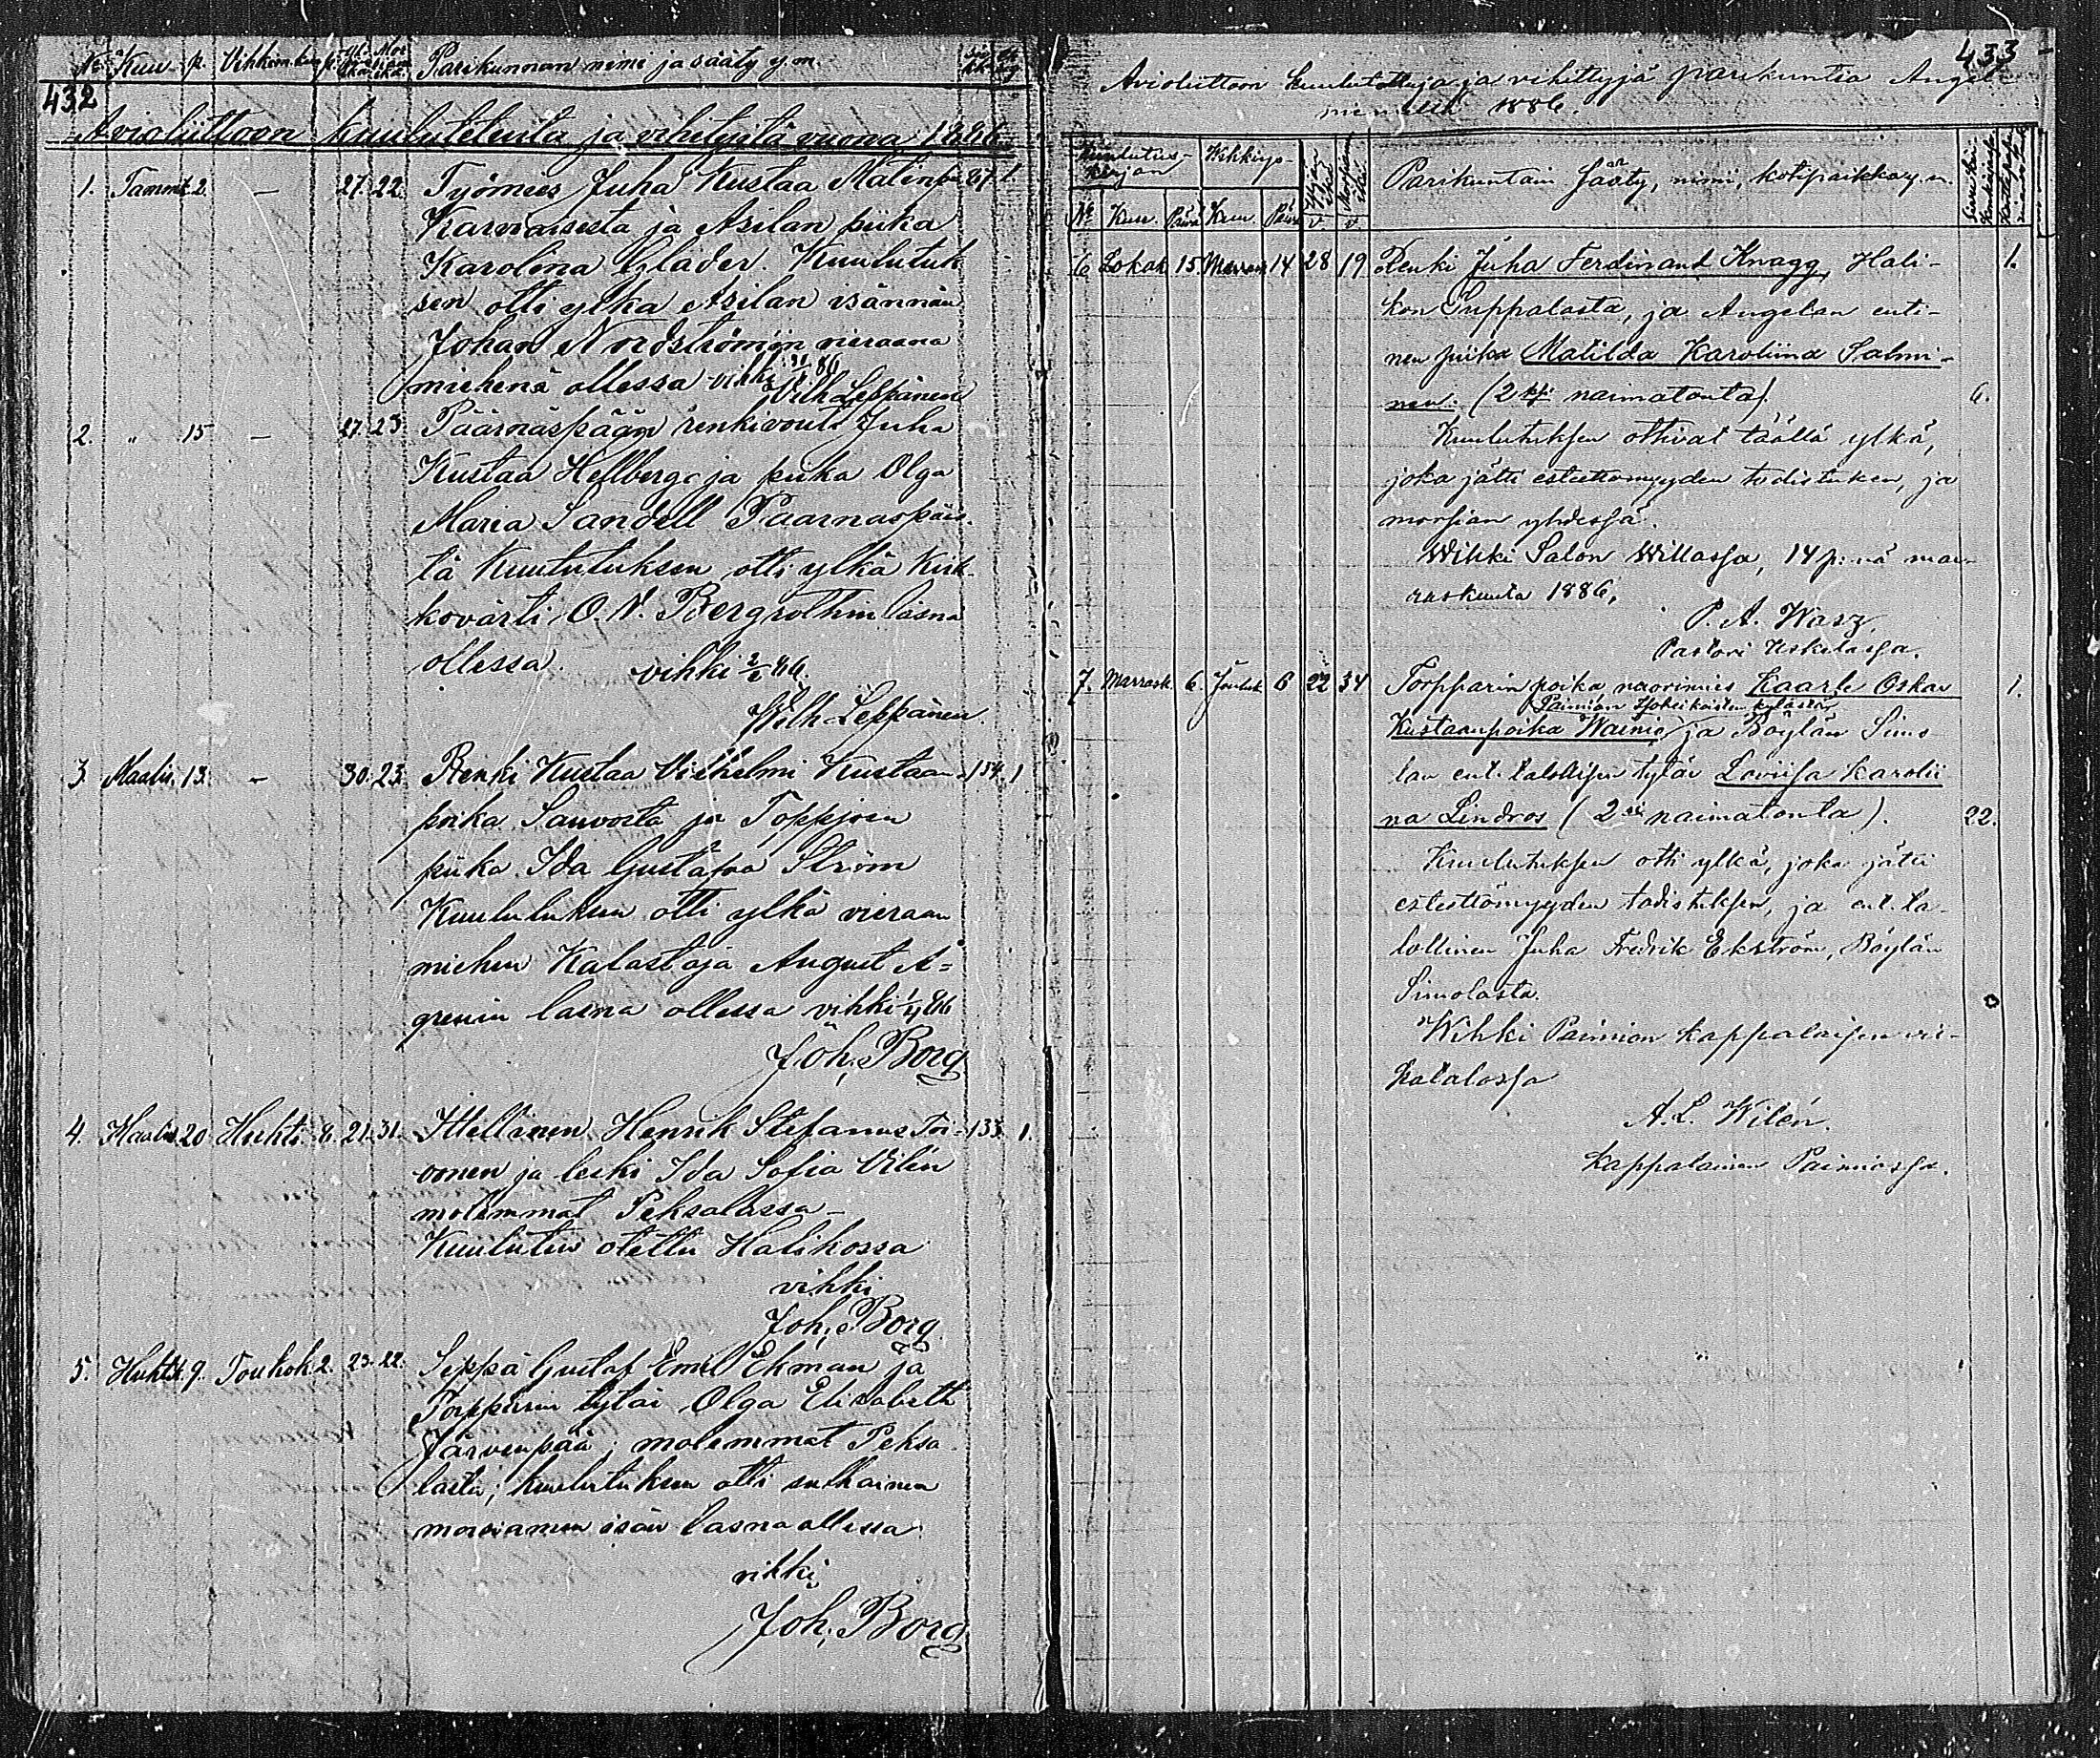 No Kuu p. Vihkim. kuu p. Parikunnan nimi ja sääty y.m.
432
Avioliittoon kuulutetuita ja vihityitä vuonna 1886.
1. Tammik. 2. – 27. 22. Työmies Juha Kustaa Matinp. 87 1
Karviaisesta ja Asilan piika
Karolina Glader. Kuulutuk
sen otti ylkä Asilan isännän
Johan Nordströmin vieraana
miehenä ollessa vihki 31/1 86
Vilh Leppänen
2. " 15 – 27. 23 Päärnäspään renkivouti Juha
Kustaa Hellberg ja piika Olga
Maria Sandell Päärnäspäis-
tä Kuulutuksen otti ylkä Kirk-
kovärti O. N. Bergrothin läsnä
ollessa. vihki 86.
Vilh Leppänen.
3 Maalis. 13. – 30. 23 Renki Kustaa Vilhelmi Kustaan- 154. 1
poika Sauvosta ja Toppjoen
piika Ida Gustafva Ström
Kuulutuksen otti ylkä vieraan
miehen Kalastaja August A=
grenin läsnä ollessa vihki 1/4 86
Joh. Borg
4. Maalis 20 Huhti. 8. 21. 31. Itsellinen Henrik Stefanus Toi- 133 1.
vonen ja leski Ida Sofia Vilén
molemmat Peksalassa –
Kuulutus otettu Halikossa
vihki
Joh. Borg
5. Huhtik. 9. Toukok. 2. 23. 22. Seppä Gustaf Emil Ekman ja
Torpparin tytär Olga Elisabeth
Järvenpää, molemmat Peksa-
lasta; kuulutuksen otti sulhainen
morsiamen isän läsna ollessa.
vihki
Joh. Borg
433
Avioliittoon kuulutettuja ja vihittyjä parikuntia Angel-
niemellä 1886.
Kuulutus- Vihkiys- Yljän ikä Morsiam. ikä Parikuntain sääty, nimi, kotipaikka y.m.
kirjan
No Kuu. Päivä Kuu Päivä v. v.
6 Lokak 15. Marrask 14 28 19 Renki Juha Ferdinand Knagg, Hali- 1.
kon Puppalasta, ja Angelan enti-
nen piika Matilda Karoliina Salmi-
nen. (2 naimatonta). 6.
Kuulutuksen ottivat täällä ylkä,
joka jätti esteettömyyden todistuksen, ja
morsian yhdessä.
Wihki Salon Willassa, 14 p:nä mar-
raskuuta 1886,
P. A. Wasz
Pastori Uskelassa.
7. Marrask. 6. Jouluk 6 22 34 Torpparin poika nuorimies Kaarle Oskar 1.
Paimion kylästä
Kustaanpoika Wainio, ja Böylän Simo-
lan ent. talollisen tytär Loviisa Karolii
na Lindros (2 naimatonta). 22.
Kuulutuksen otti ylkä, joka jätti
esteettömyyden todistuksen, ja ent. ta-
lollinen Juha Fredrik Ekström, Böylän
Simolasta.
Wihki Paimion kappalaisen vir-
katalossa
A. L. Wilén.
Kappalainen Paimiossa.